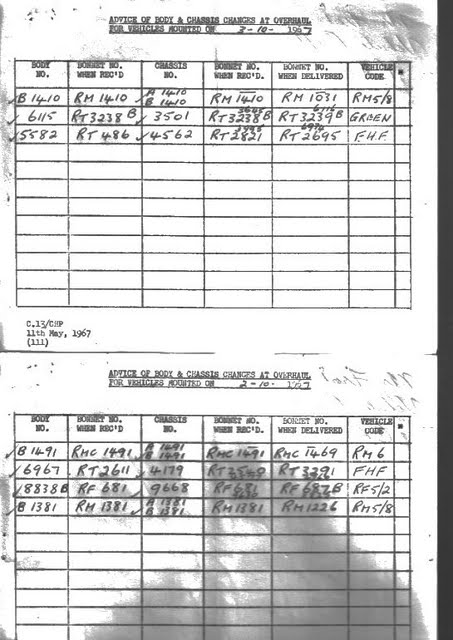 ADVICE OF BODY & CHASSIS CHANGES AT OVERHAUL
FOR VEHICLES MOUNTED ON 3-10- 1967
BODY NO. BONNET NO. WHEN REC'D CHASSIS NO. BONNET NO. WHEN REC'D. BONNET NO. WHEN DELIVERED VEHICLE CODE
B 1410 RM 1410 A 1410 B 1410 RM 1410 RM 1031 RM5/8
6115 RT 3238 B 3501 RT 3238 B RT 3239 B GREEN
5582 RT 486 4562 RT 2821 RT 2695 F.H.F.
C.13/CHP
11th May, 1967
(111)
ADVICE OF BODY & CHASSIS CHANGES AT OVERHAUL
FOR VEHICLES MOUNTED ON 2-10- 1967
BODY NO. BONNET NO. WHEN REC'D CHASSIS NO. BONNET NO. WHEN REC'D. BONNET NO. WHEN DELIVERED VEHICLE CODE
B 1491 RMC 1491 A 1491 B 1491 RMC 1491 RMC 1469 RM 6
6967 RT 2611 4179 RT 3291 FHF
8838 B RF 681 9668 RF 681 RF5/2
B 1381 RM 1381 A 1381 B 1381 RM 1381 RM 1226 RM5/8